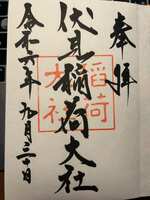 奉拝
伏見稲荷大社
稲荷
大社
令和六年九月三日